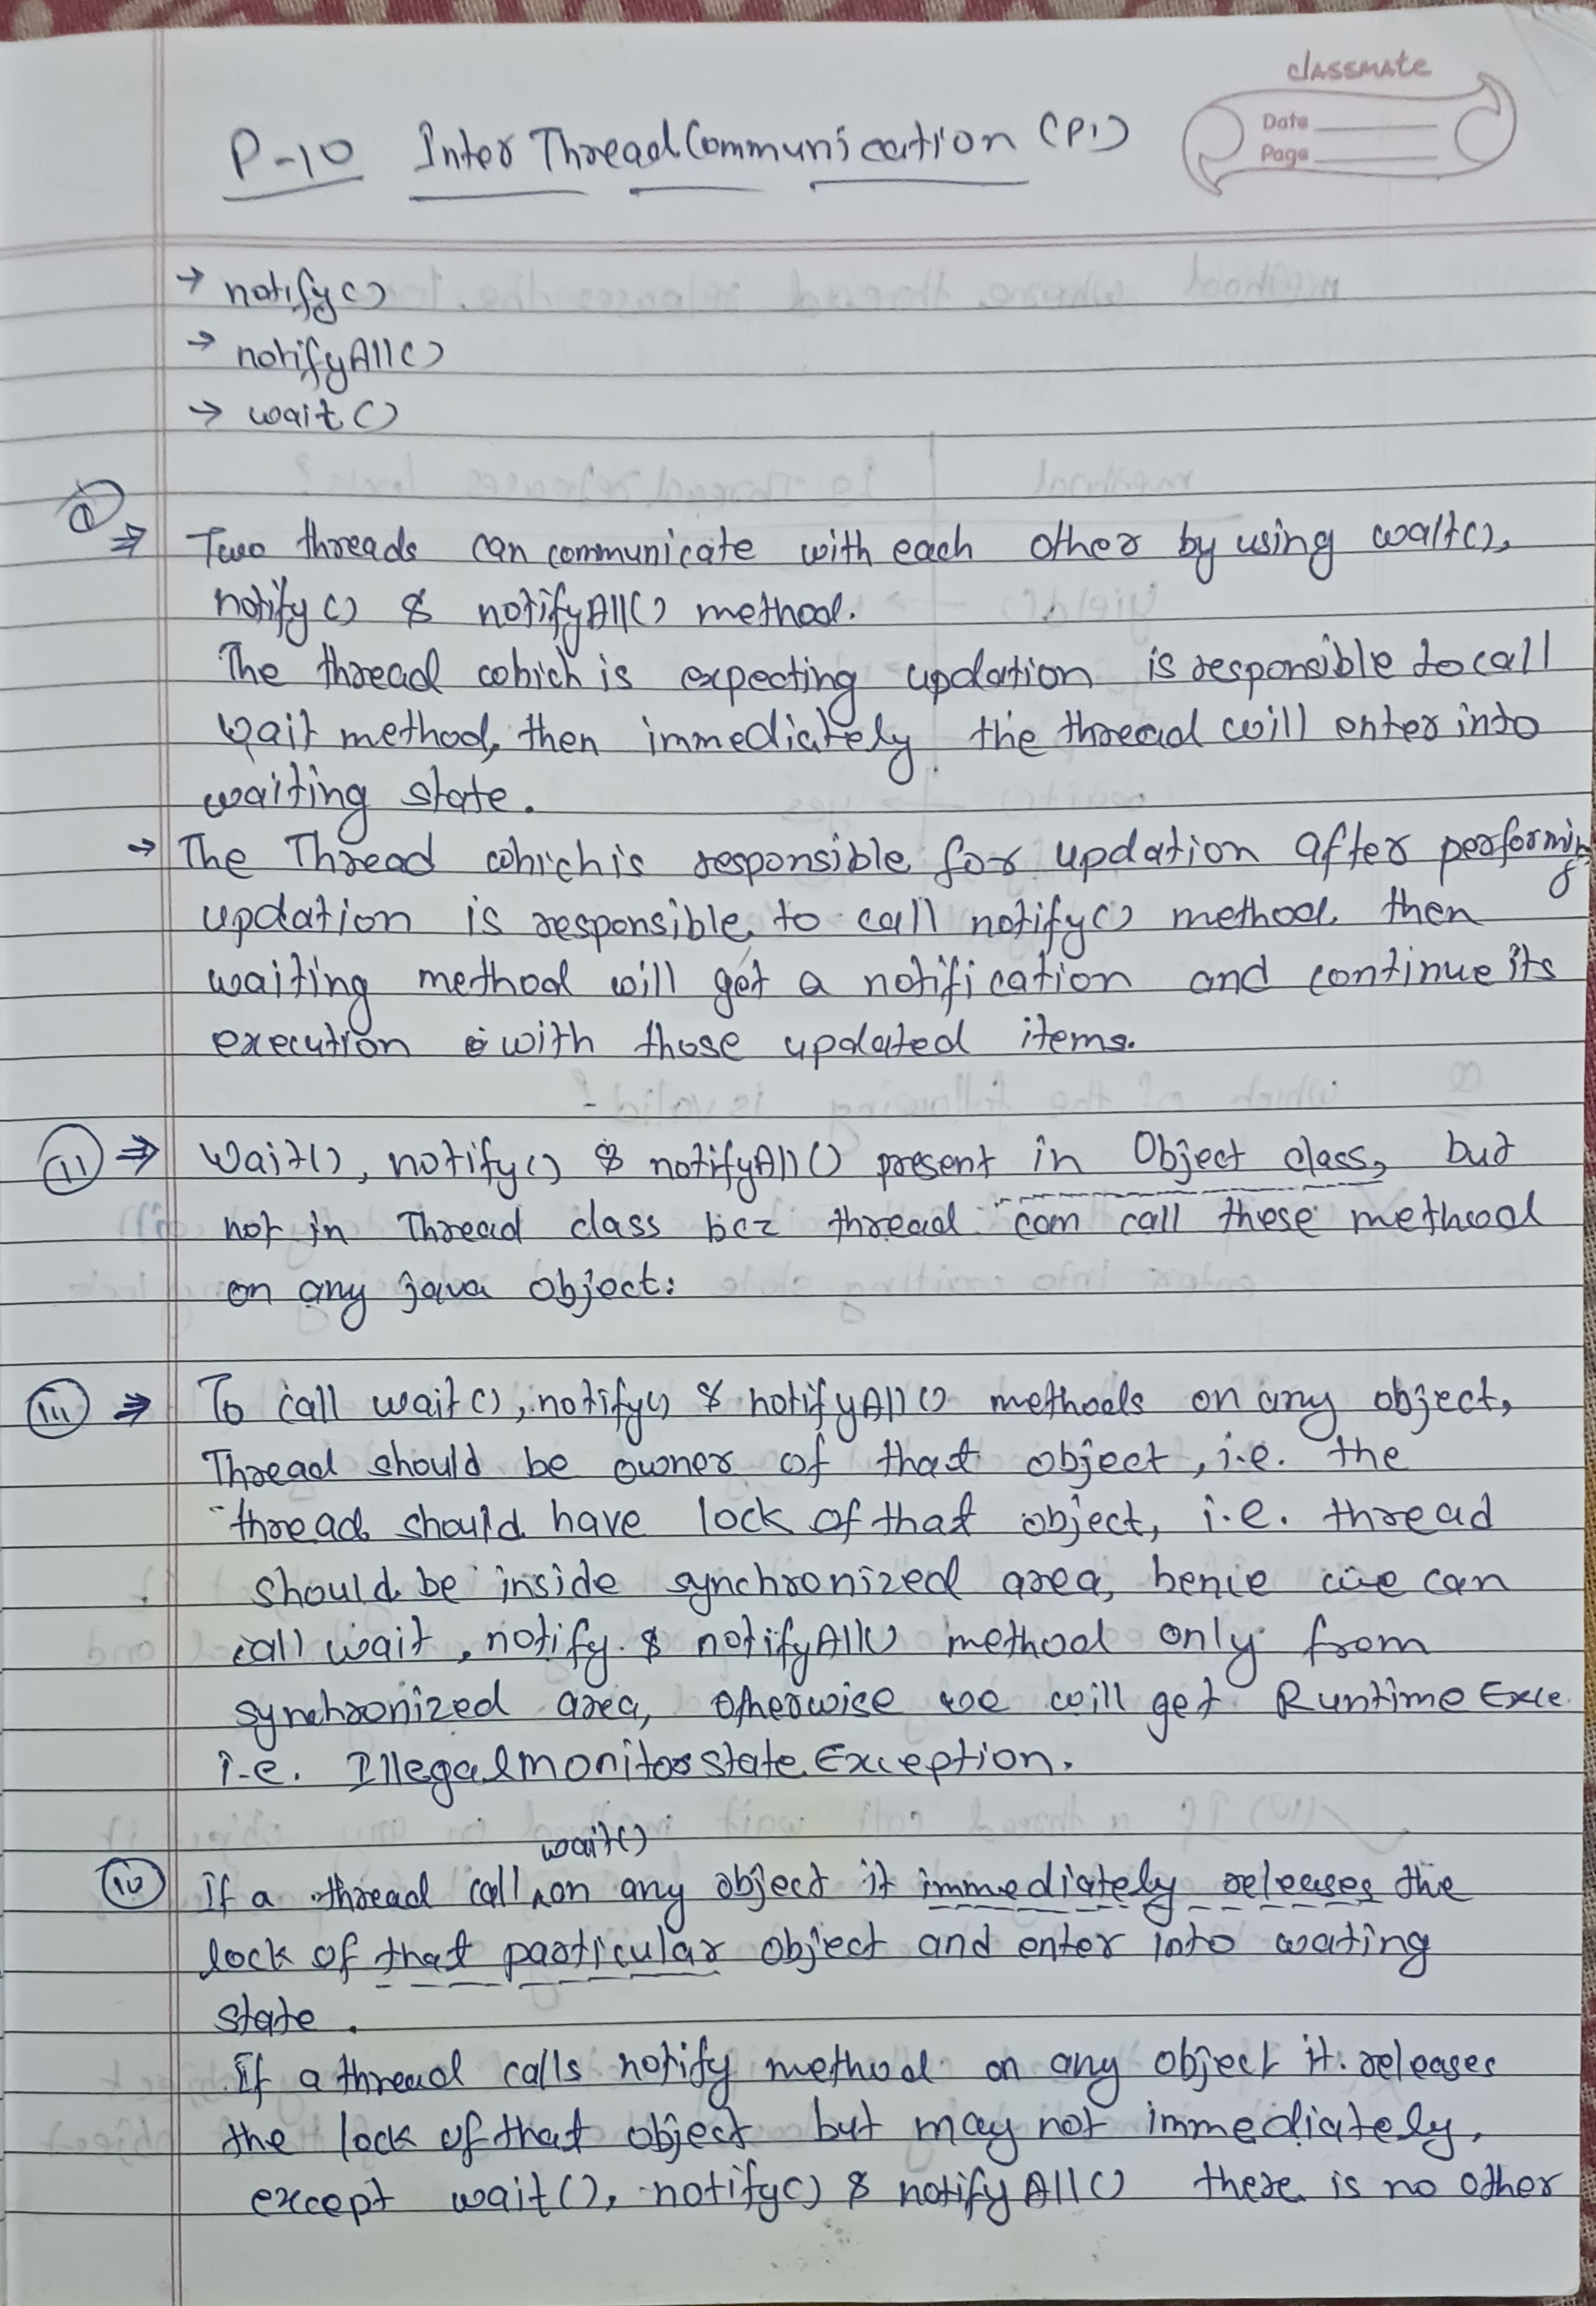 classmate
Date
Page
P-10 Inter Thread Communication (P1)
→ notify()
→ notifyAll()
→ wait()
(i) ⇒ Two threads can communicate with each other by using wait(),
notify() & notifyAll() method.
The thread which is expecting updation is responsible to call
wait method, then immediately the thread will enter into
waiting state.
→ The Thread which is responsible for updation after performing
updation is responsible to call notify() method then
waiting method will get a notification and continue its
execution with those updated items.
(ii) ⇒ Wait(), notify() & notifyAll() present in Object class, but
not in Thread class bcz thread can call these method
on any java object:
(iii) ⇒ To call wait(), notify() & notifyAll() methods on any object,
Thread should be owner of that object, i.e. the
thread should have lock of that object, i.e. thread
should be inside synchronized area, hence we can
call wait, notify & notifyAll() method only from
synchronized area, otherwise we will get Runtime Exce
i.e. IllegalmonitorstateException.
(iv) If a thread call wait() on any object it immediately releases the
lock of that particular object and enter into wating
state.
If a thread calls notify method on any object it releases
the lock of that object but may not immediately,
except wait(), notify() & notifyAll() there is no other